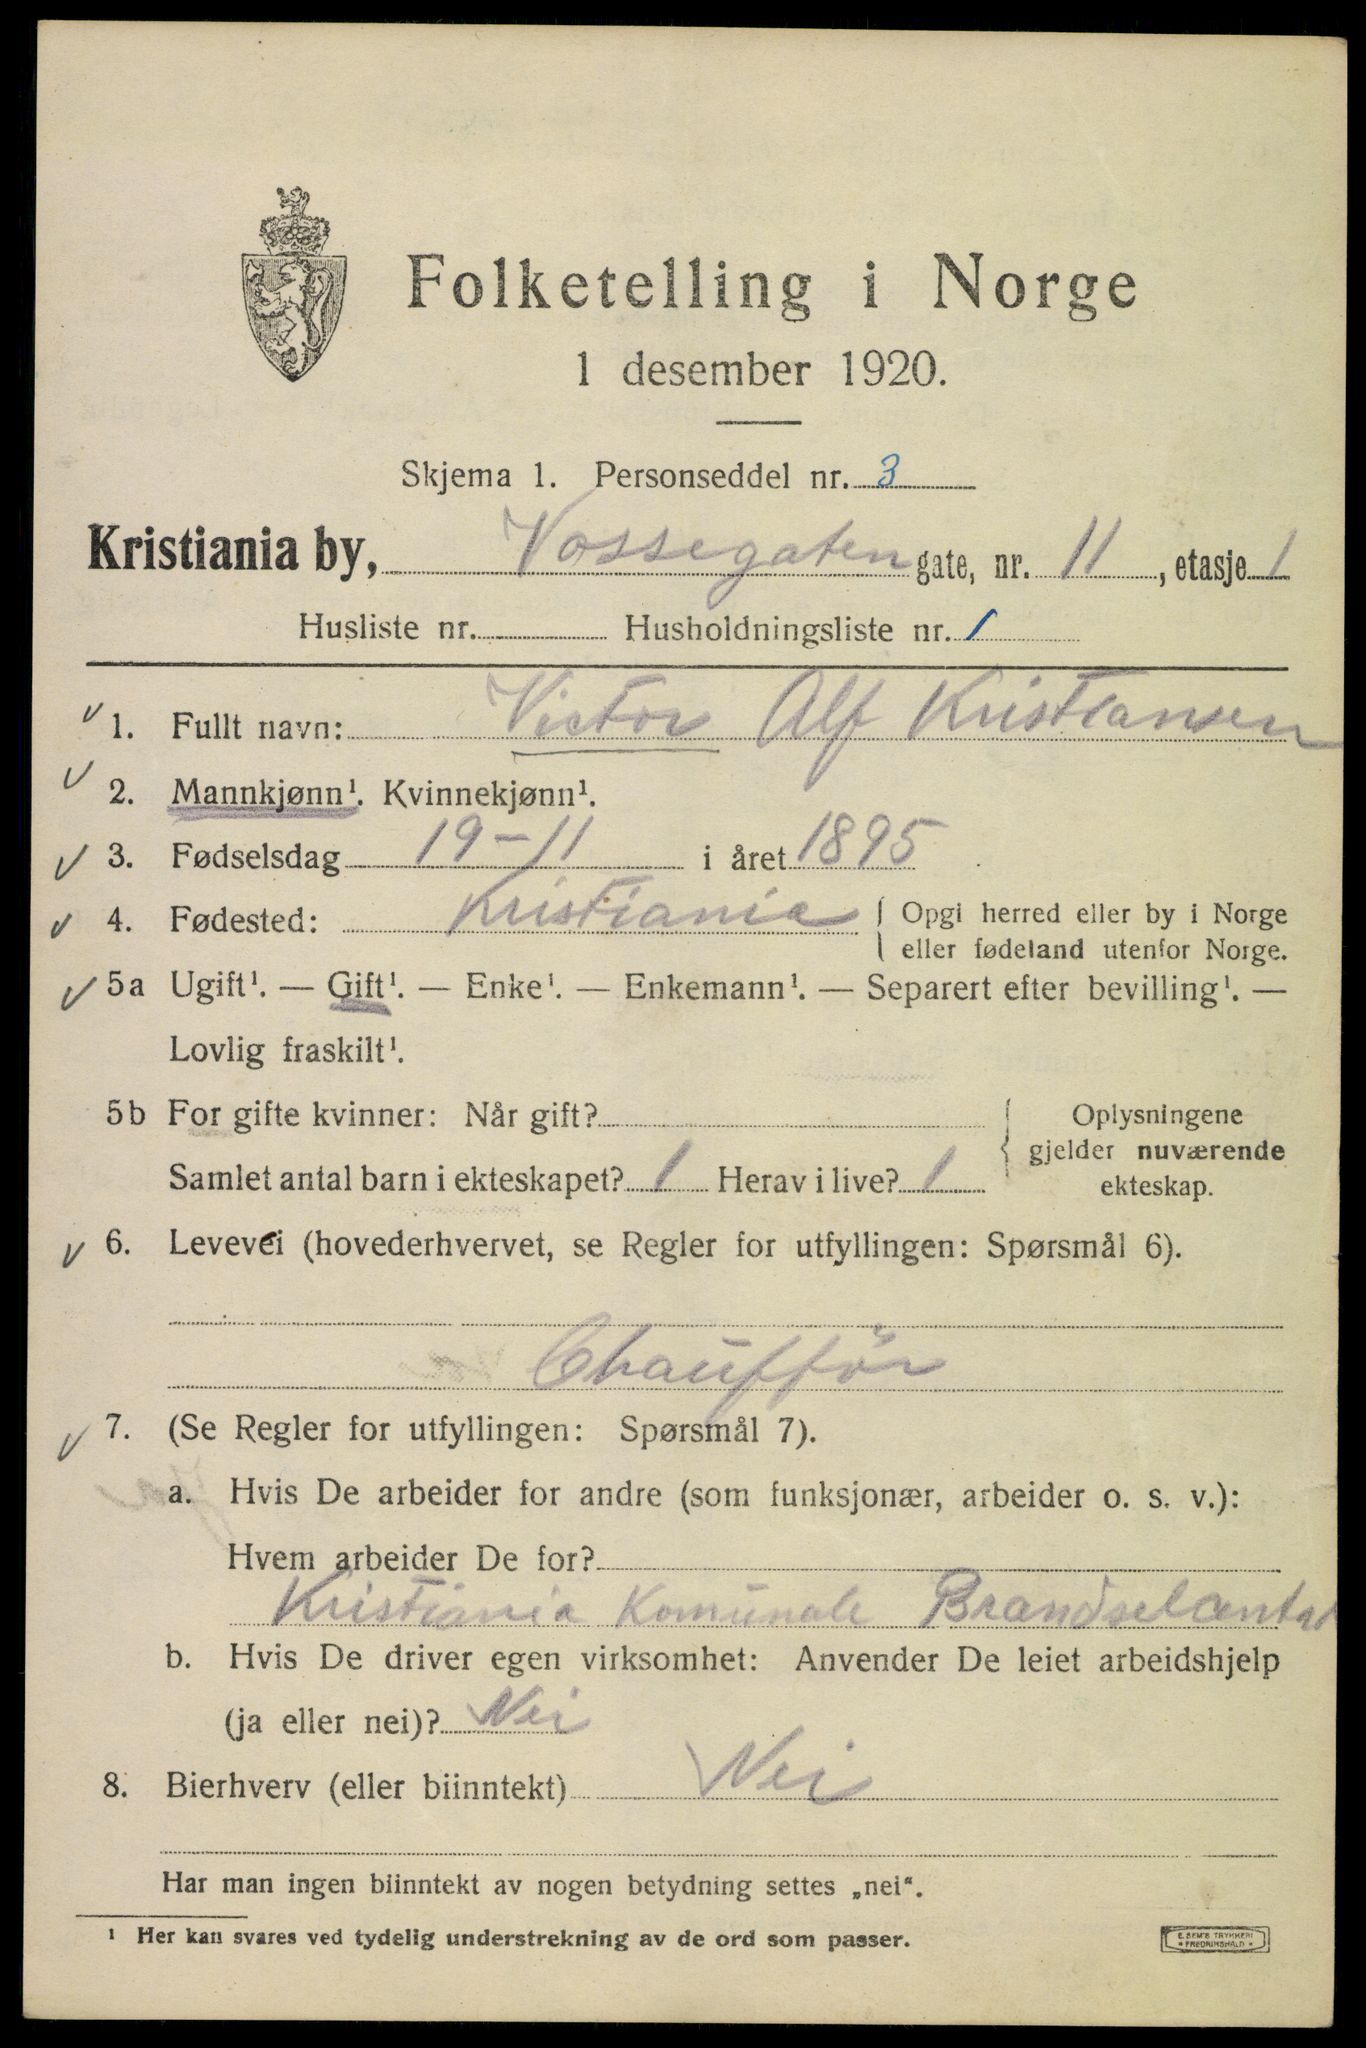 Folketelling i Norge
1 desember 1920.
Skjema 1. Personseddel nr. 3
Kristiania by, Vossegaten gate, nr. 11, etasje 1
Husliste nr. Husholdningsliste nr. 1
1. Fullt navn: Victor Alf Kristiansen
2. Mannkjønn¹. Kvinnekjønn¹.
3. Fødselsdag 19-11 i året 1895
4. Fødested: Kristiania Opgi herred eller by i Norge
eller fødeland utenfor Norge.
5a Ugift¹. — Gift¹. — Enke¹. — Enkemann¹. — Separert efter bevilling¹. —
Lovlig fraskilt¹.
5b For gifte kvinner: Når gift? Oplysningene
gjelder nuværende
Samlet antal barn i ekteskapet? 1 Herav i live? 1 ekteskap.
6. Levevei (hovederhvervet, se Regler for utfyllingen: Spørsmål 6).
Chaufför
7. (Se Regler for utfyllingen: Spørsmål 7).
a. Hvis De arbeider for andre (som funksjonær, arbeider o. s. v.):
Hvem arbeider De for?
Kristiania Komunale
b. Hvis De driver egen virksomhet: Anvender De leiet arbeidshjelp
(ja eller nei)? Nei
8. Bierhverv (eller biinntekt) Nei
Har man ingen biinntekt av nogen betydning settes „nei“.
¹ Her kan svares ved tydelig understrekning av de ord som passer.
E. SEM'S TRYKKERI
FREDRIKSHALD